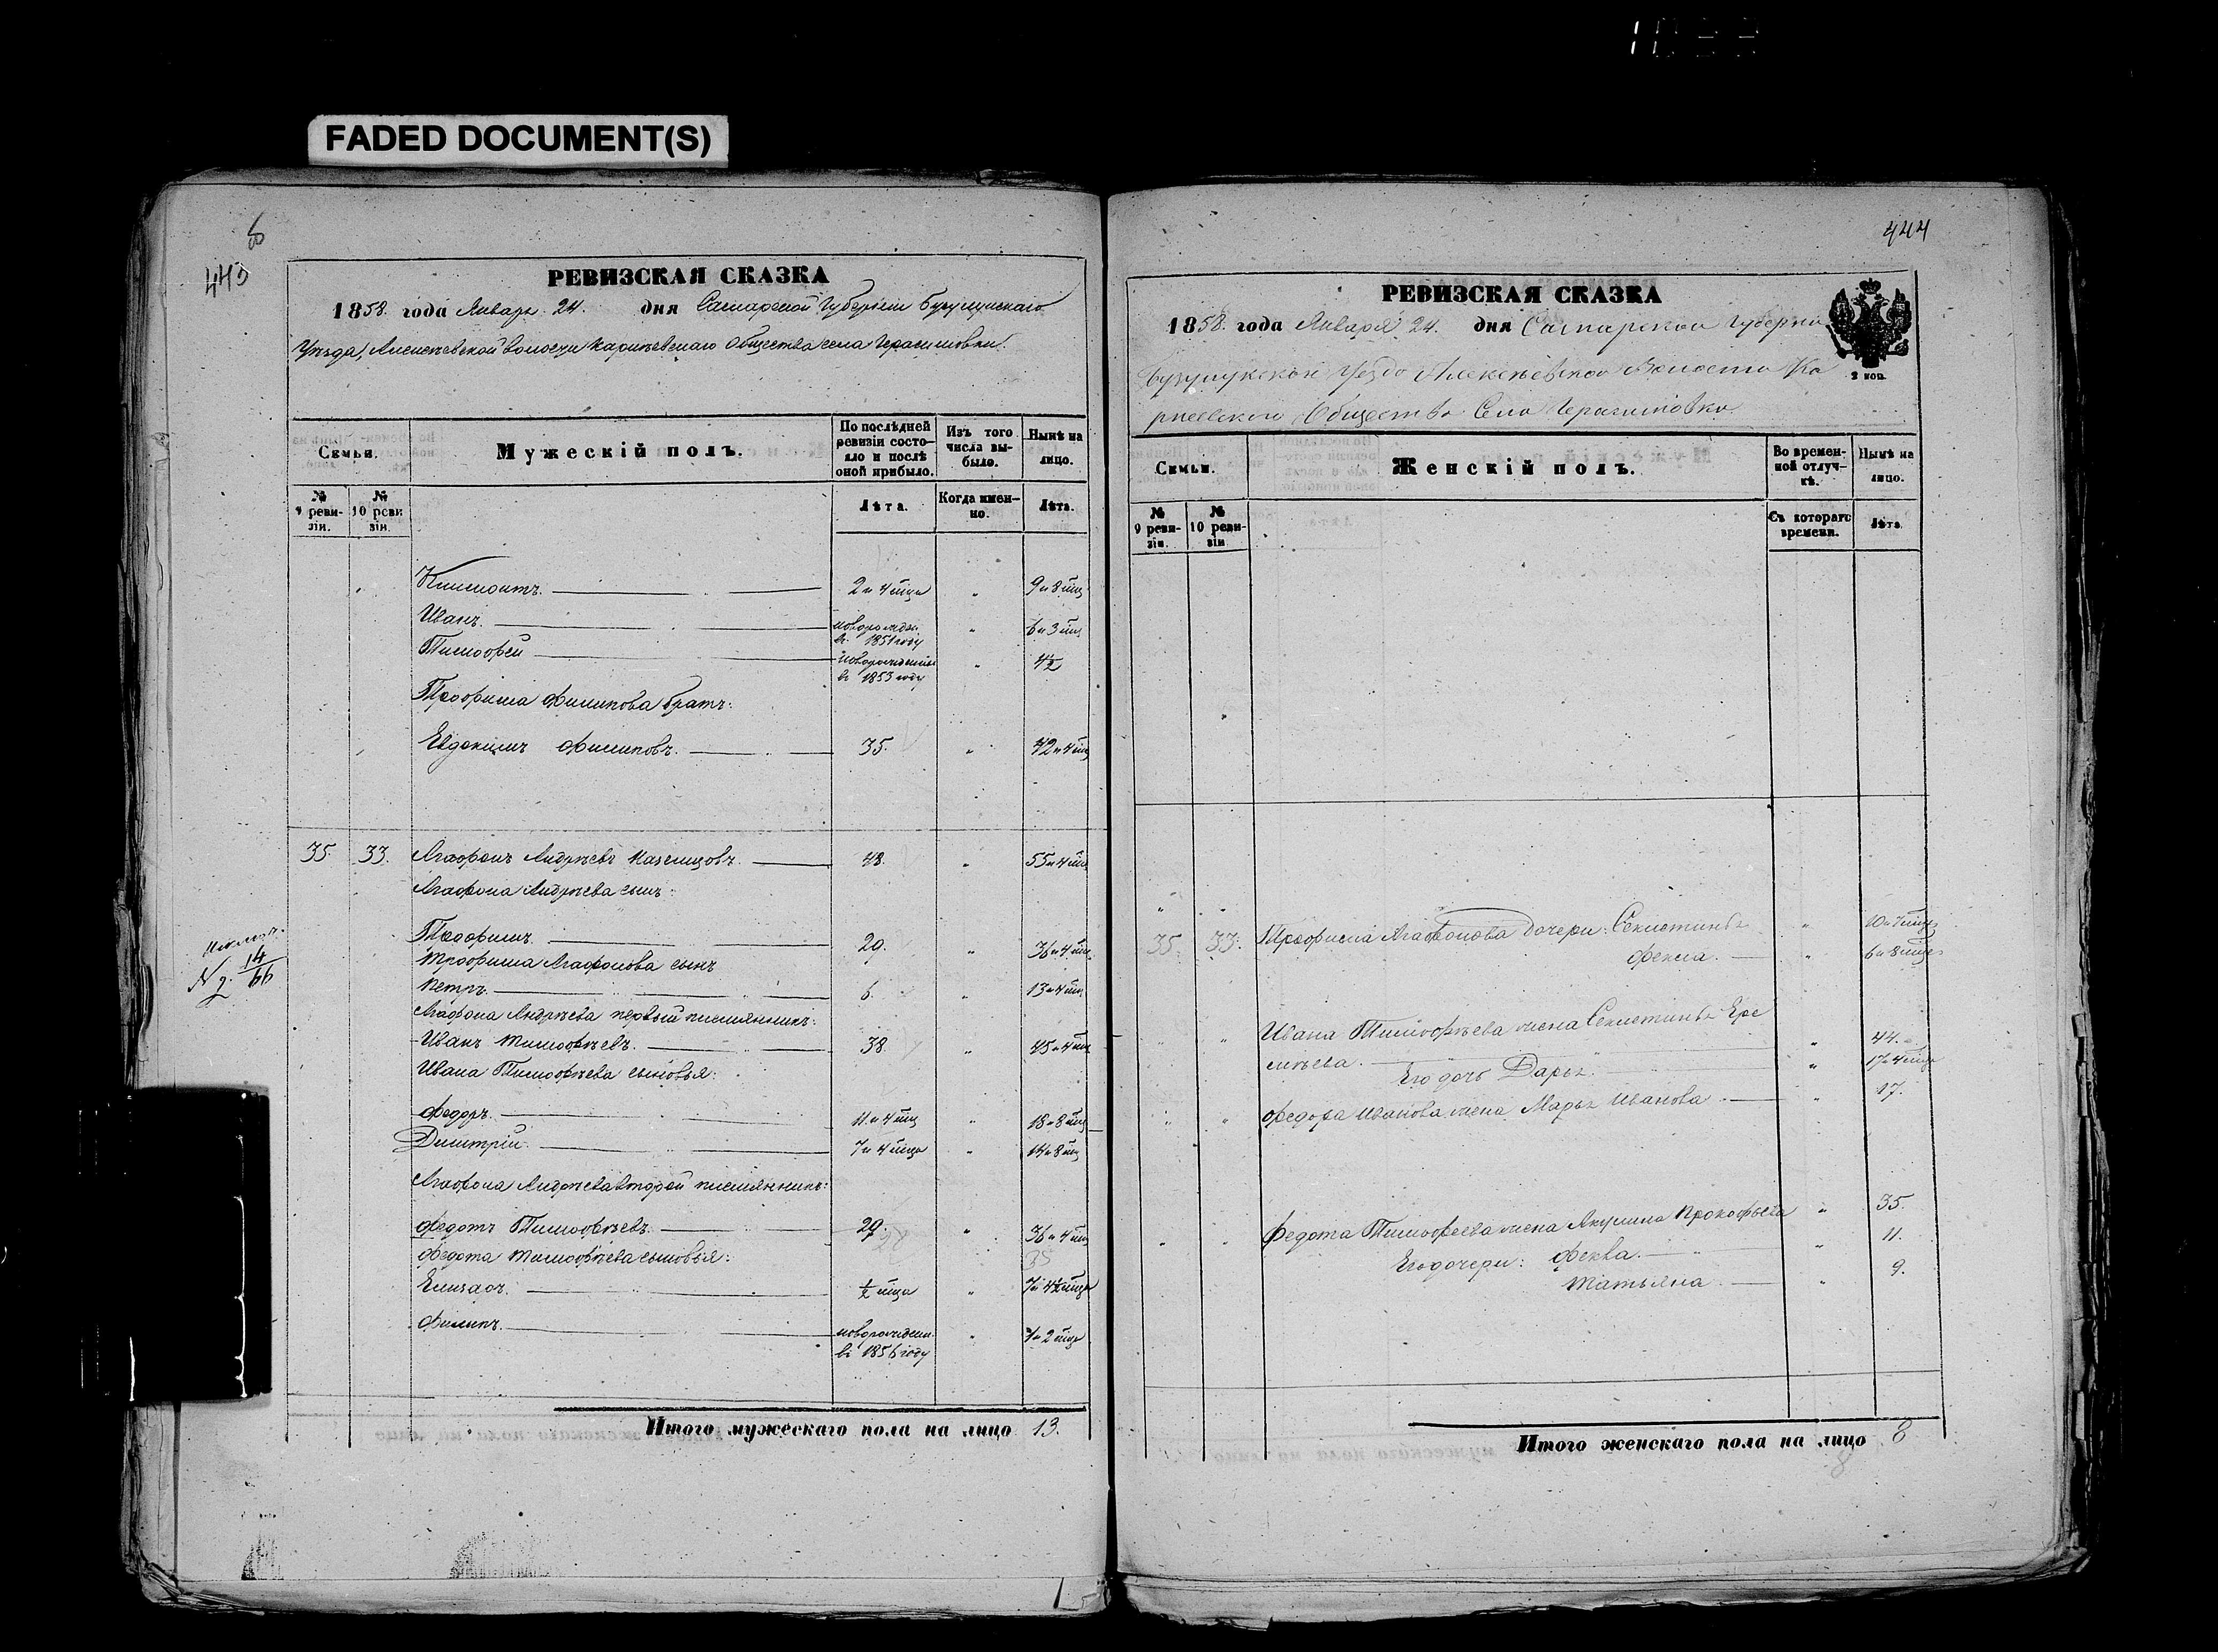 FADED DOCUMENT(S)
443
РЕВИЗСКАЯ СКАЗКА
1858. года Января 24. дня Самарской Губернии Бузулукскаго
Уѣзда, Алексѣевской волости Каришевскаго Общества села Герасимовки.
Семьи.
Мужескій полъ.
По послѣдней ревизіи состояло и послѣ оной прибыло.
Изъ того числа выбыло.
Нынѣ на лицо.
№ 9 ревизіи.
№ 10 ревизіи.
Лѣта.
Когда именно.
Лѣта.
2 и 4 мѣца " 9 и 8 мѣц
Иванъ. новорожден. въ 1851 году " 6 и 3 мѣц
Тимофей новорожденный въ 1853 году " 4½
Трофима Филипова братъ:
Евдокимъ Филиповъ. 35. " 42 и 4 мѣц
35. 33. Агафонъ Андрѣевъ Казенцовъ. 48. " 55 и 4 мѣц
Агафона Андрѣева сынъ:
Трофимъ. 29. " 36 и 4 мѣц
Трофима Агафонова сынъ
Петръ. 6. " 13 и 4 мѣц
Агафона Андрѣева первый племянникъ:
Иванъ Тимофѣевъ. 38. " 45 и 4 мѣц
Ивана Тимофѣева сыновья:
Федоръ. 11 и 4 мѣц " 18 и 8 мѣц
Димитрій. 7 и 4 мѣца " 14 и 8 мѣц
Агафона Андрѣева второй племянникъ:
Федотъ Тимофѣевъ. 29. " 36 и 4 мѣц
Федота Тимофѣева сыновья:
½ мѣца " 7 и 4½ мѣца
Филипъ. новорожден. въ 1856 году " 1 и 2 мѣца
№ 2. 14/66
Итого мужескаго пола на лицо 13.
444
РЕВИЗСКАЯ СКАЗКА
1858. года Января 24. дня Самарской Губерніи
2 коп.
Бузулукскои Уездо Алексѣевской Волости Ка
Общество Села Герасимовко.
Семьи.
Женскій полъ.
Во временной отлучкѣ.
Нынѣ на лицо.
№ 9 ревизіи.
№ 10 ревизіи
Съ котораго времени.
Лѣта.
35. 33. Трофима Агафонова дочери: Секлетинья " 10 и 7 мѣц
Фекла. " 6 и 8 мѣце
" " Ивана Тимофѣева жена Секлетинья Ере
мѣева. " 44.
Его дочь Дарья. " 17 и 4 мѣца
" " Федора Иванова жена Марья Иванова " 17.
" " Федота Тимофеева жена Акулина Прокофьева " 35.
Его дочери: Фекла. " 11.
Татьяна " 9.
Итого женскаго пола на лицо 8
8